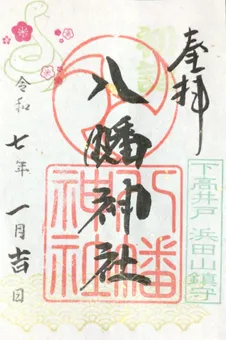 奉拝
八幡神社
八幡
神社
下高井戸 浜田山鎮守
令和七年一月吉日